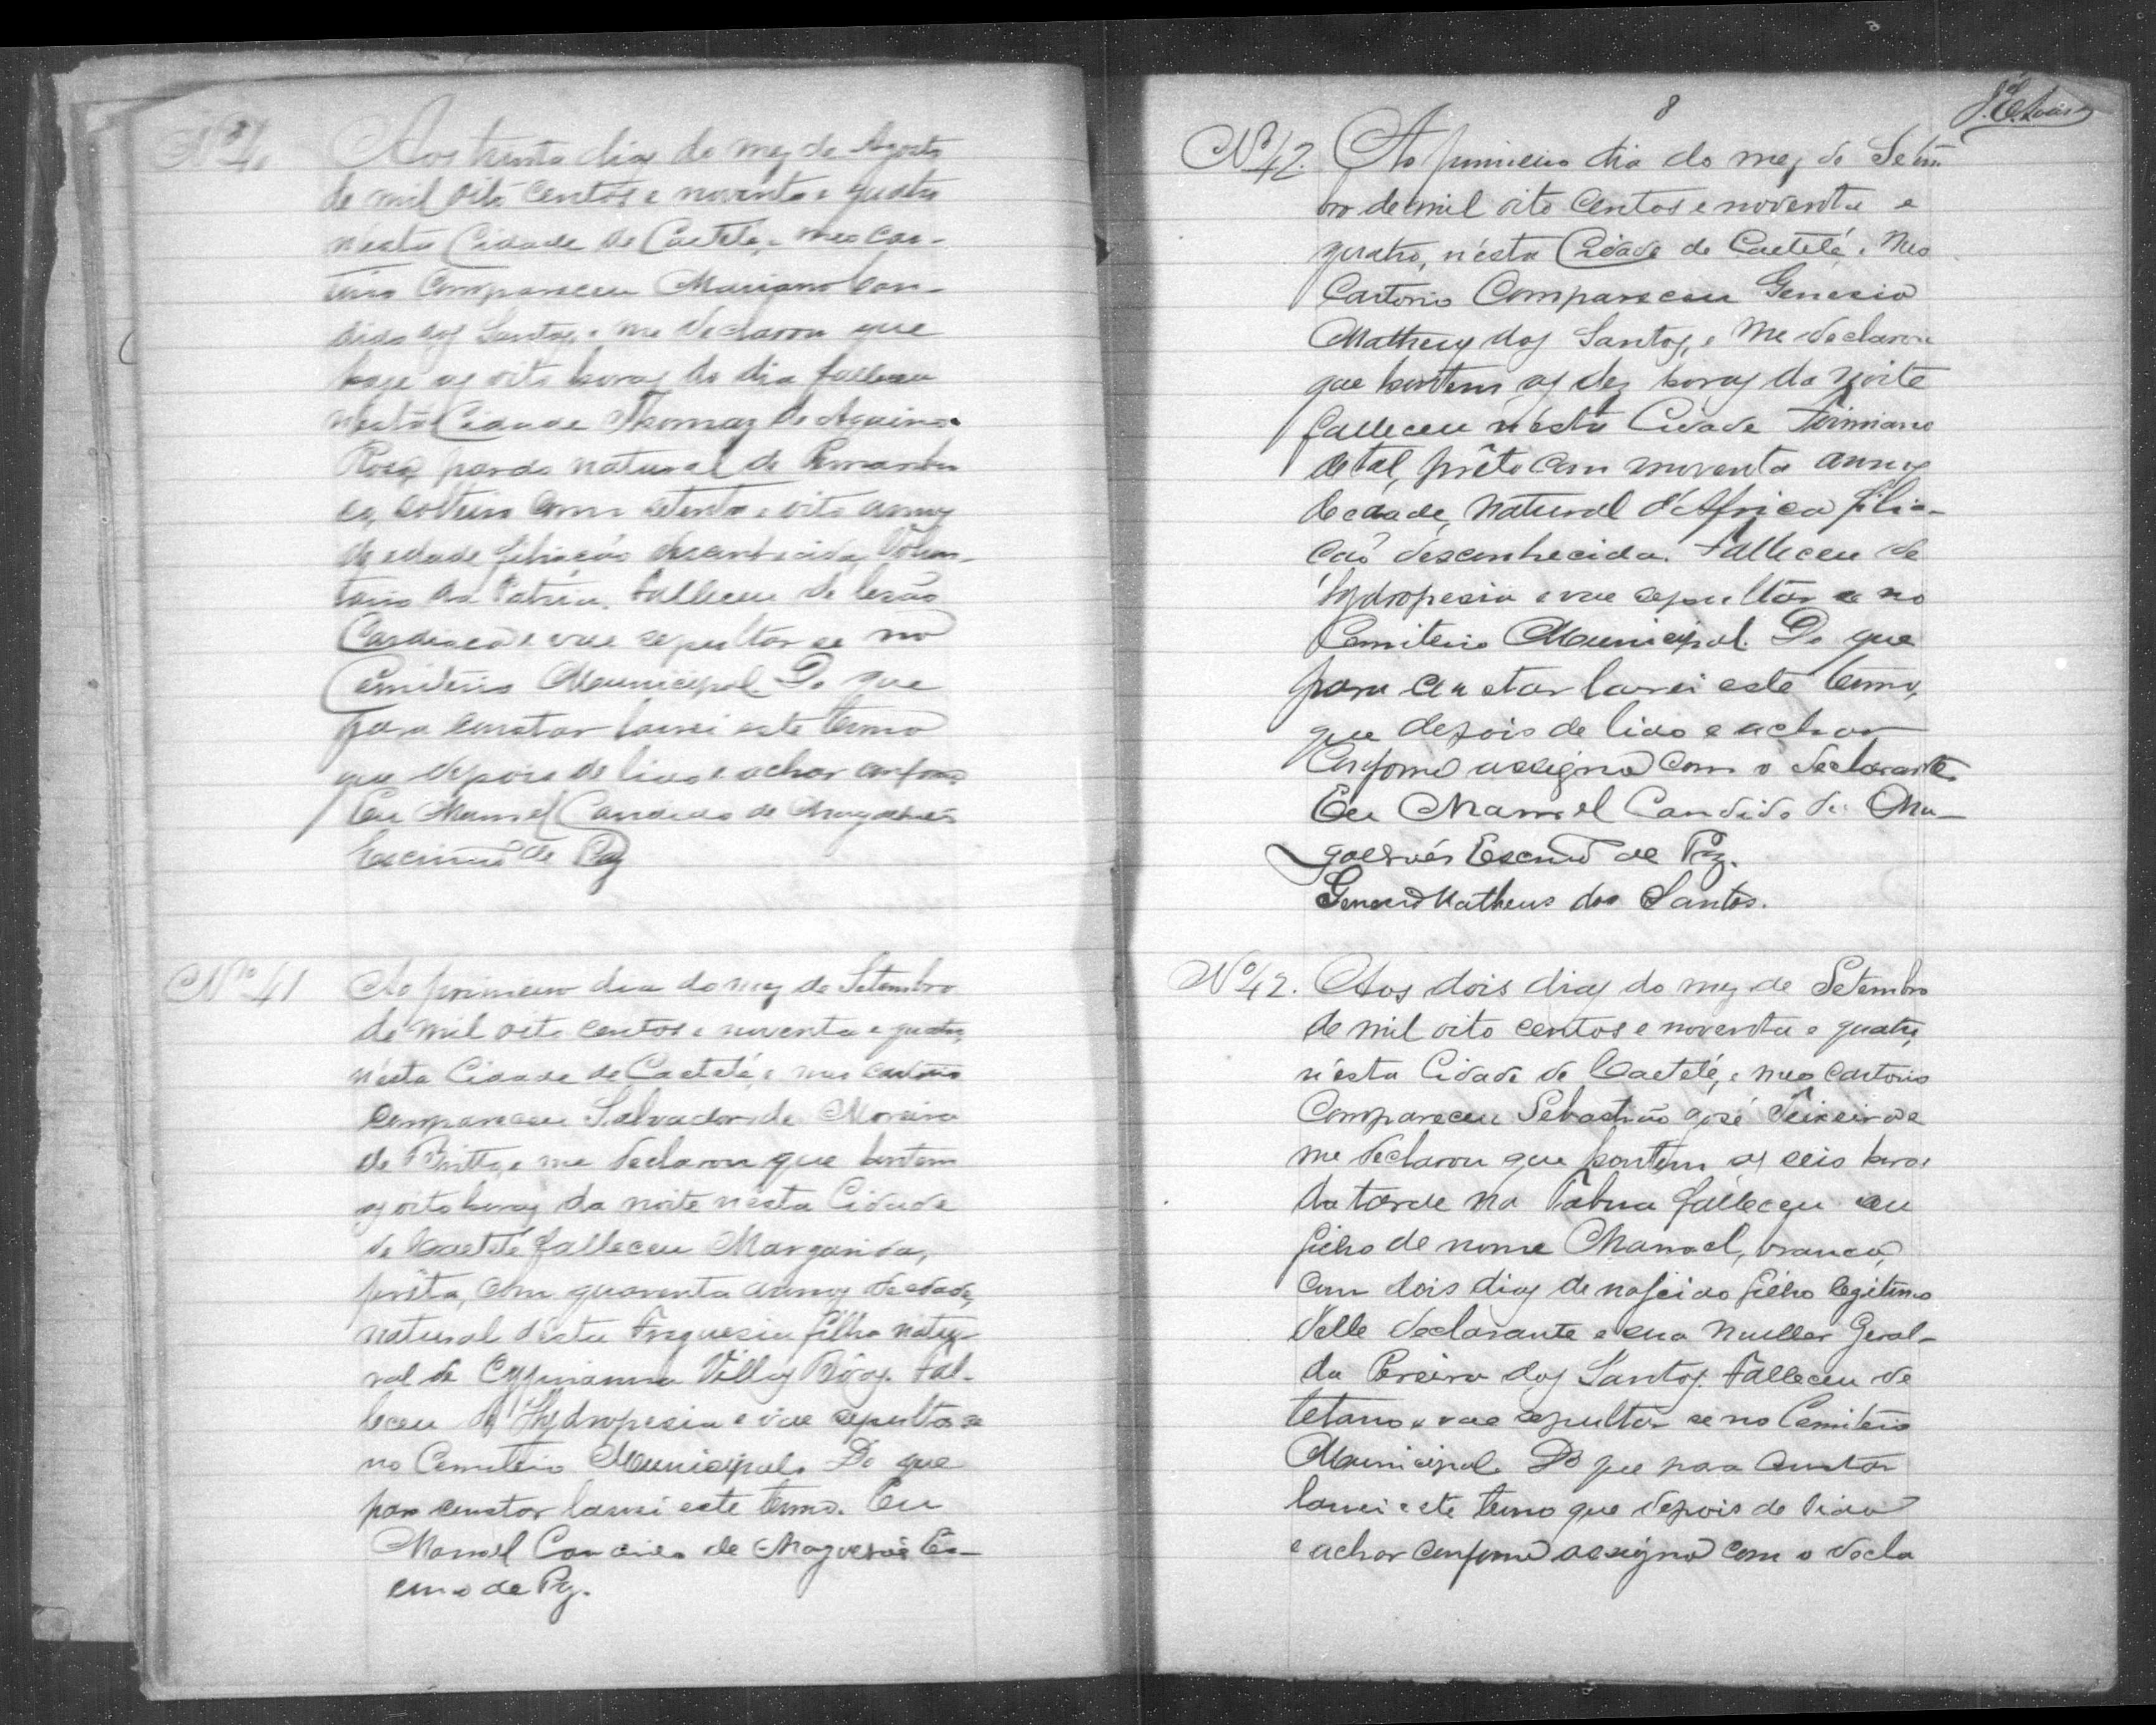 Nº 4
Aos trinta dias do mez de Agosto
de mil oito centos e noventa e quatro
n'esta Cidade de Caetité, e meo Car-
torio Compareceu Mariano Can-
dido dos Santos, e me declarou que
hoje as oito horas do dia falleceu
n'esta Cidade Thomaz de Aquino
Rosa, pardo natural de
solteiro com setenta e oito annos
de edade filiação desconhecida, Volun-
tario da Patria. Falleceu de lesão
Cardiaca e vae sepultar se no
Cemiterio Municipal. Do que
para constar lavrei este termo
que depois de lido e achar conforme
Eu Manoel Candido de Magalhães
Escrivão de Paz
Nº 41
Ao primeiro dia do mez de Setembro
de mil oito centos e noventa e quatro,
n'esta Cidade de Caetité, e meo Cartorio
compareceu Salvador de Moreira
de Britto, e me declarou que hontem
as oito horas da noite n'esta Cidade
de Caetité falleceu Margarida,
prêta, com quarenta annos de edade,
natural desta Freguesia filha natu-
ral de Cyprianna Villas Bôas. Fal-
leceu de Hydropesia e vae sepultar se
no Cemiterio Municipal. Do que
para constar lavrei este termo. Eu
Manoel Candido de Magalhães Es-
crivão de Paz.
8
Nº 42.
Ao primeiro dia do mez de Setem
bro de mil oito centos e noventa e
quatro, n'ésta Cidade de Caetité, e meo
Cartorio Compareceu Genesio
Matheus dos Santos, e me declarou
que hontem as dez horas da noite
falleceu n'ésta Cidade Firmiano
de tal, prêto com noventa annos
de edade, natural d'Africa filia-
ção desconhecida. Falleceu de
hydropesia e vae sepultar se no
Cemiterio Municipal. Do que
para constar lavrei este termo,
que depois de lido e achar
Conforme assigna com o declarante.
Eu Manoel Candido de Ma-
galhães Escrivão de Paz.
Genesio Matheus dos Santos.
Nº 42.
Aos dois dias do mez de Setembro
de mil oito centos e noventa e quatro,
n'ésta Cidade de Caetité, e meo Cartorio
Compareceu Sebastião José Teixeira e
me declarou que hontem as seis horas
da tarde na Tabua falleceu seu
filho de nome Manoel, branco,
com dois dias de nascido filho legitimo
delle declarante e sua mulher Geral-
da Pereira dos Santos. Falleceu de
tetano e vae sepultar se no Cemiterio
Municipal. Do que para constar
lavrei este termo que depois de lido
e achar conforme assigna com o decla